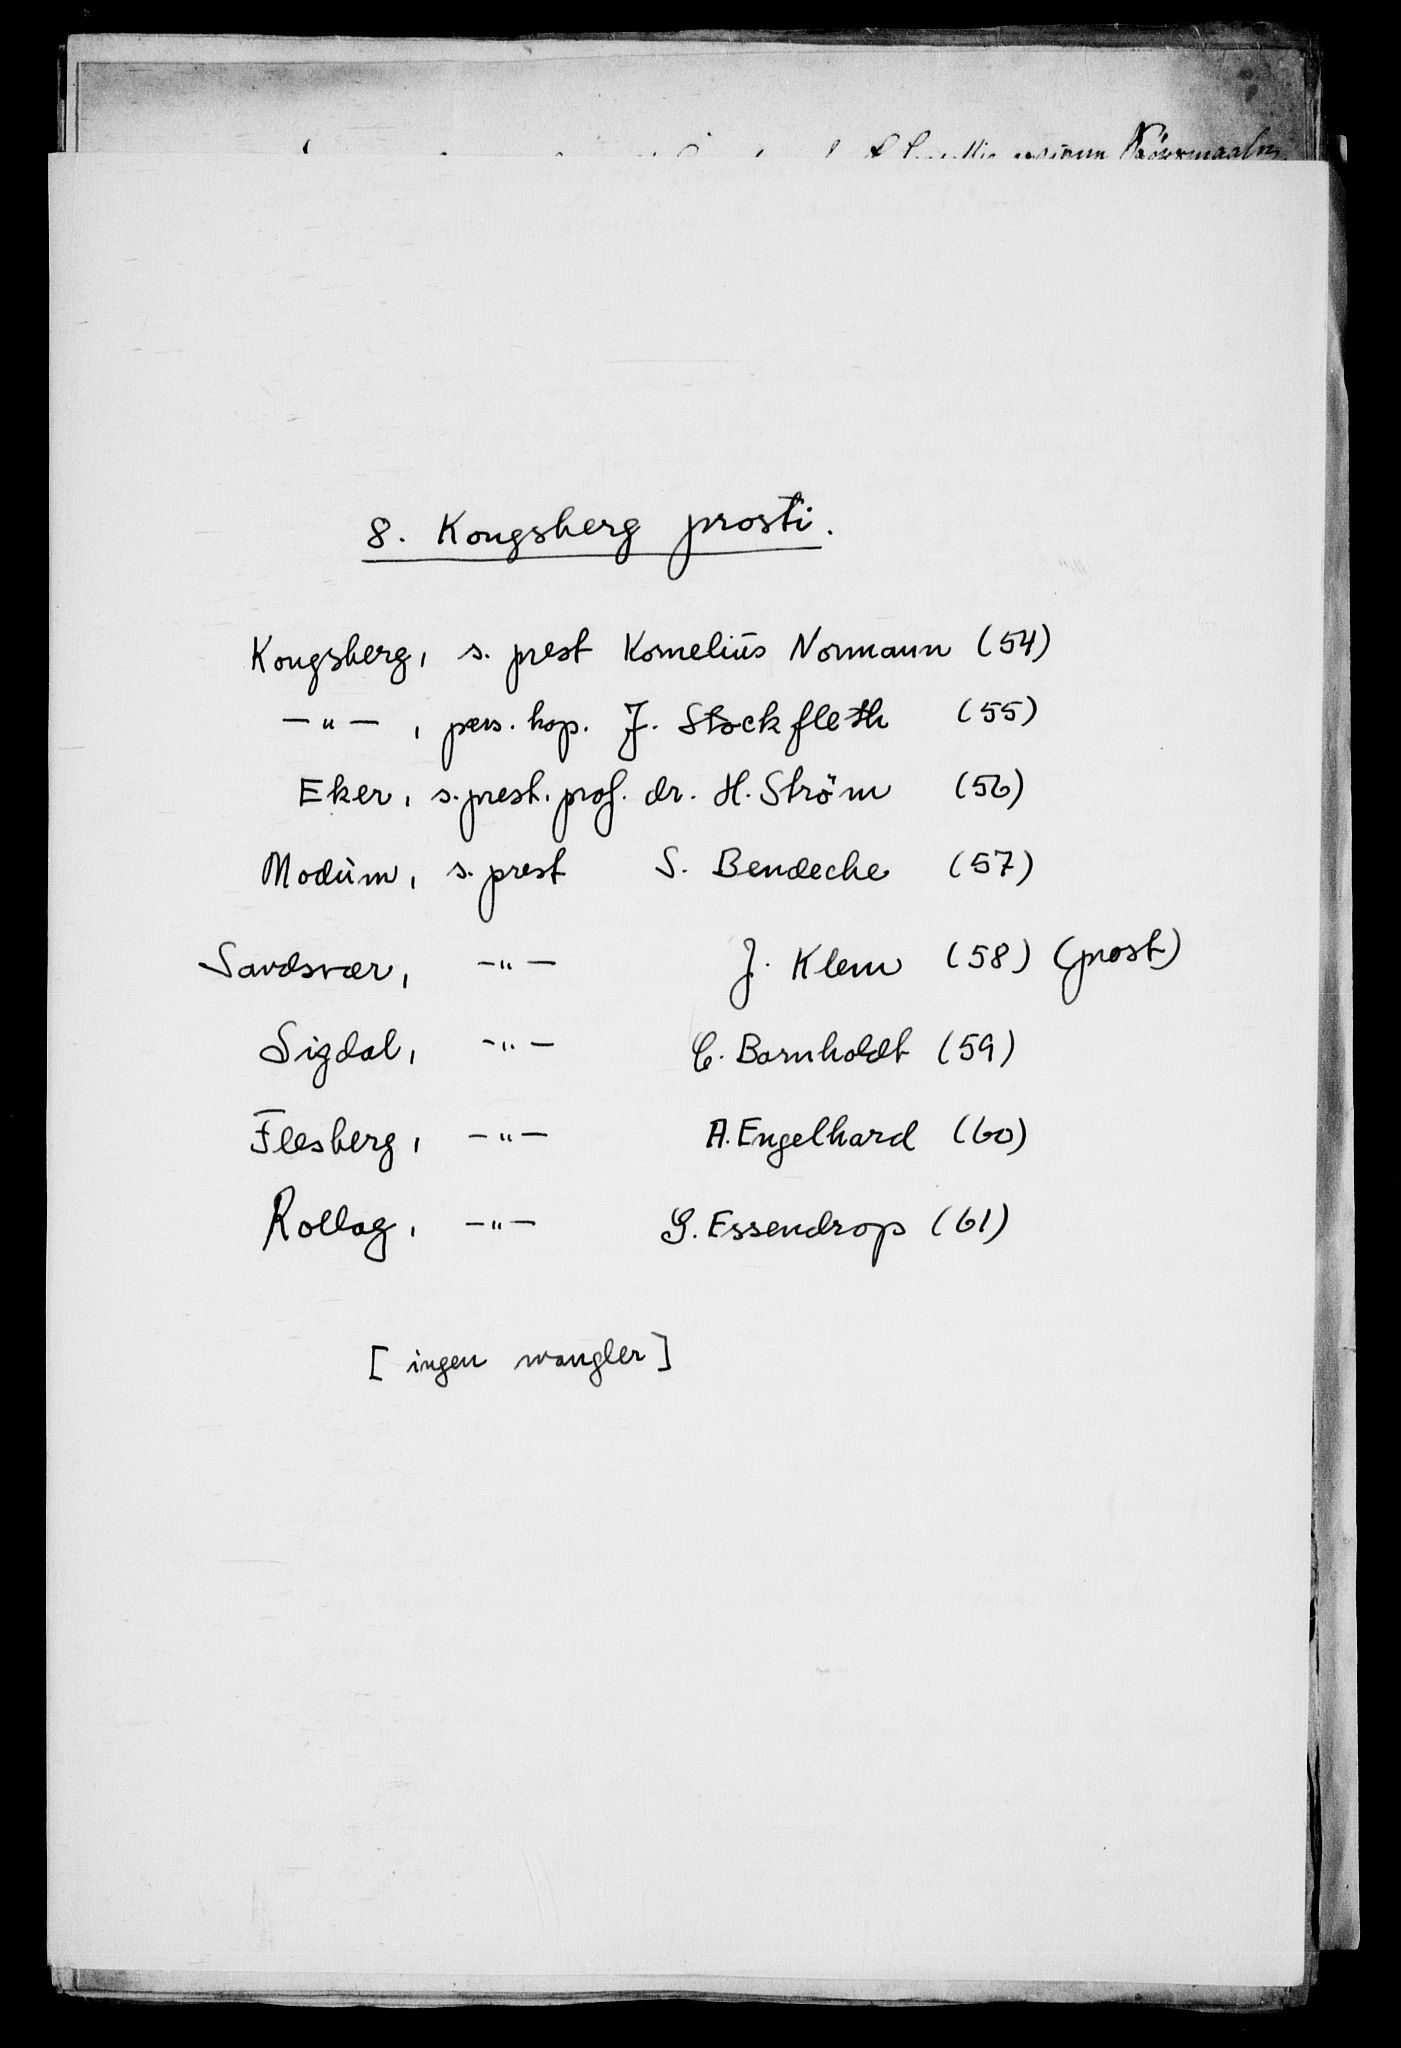 8. Kongsberg prosti.
Kongsberg, s. prest Kornelius Normann (54)
—"—, pers. kap. J. Stockfleth (55)
Eker, s. prest. prof. dr. H. Ström (56)
Modum, s. prest S. Bendeche (57)
Sandsvær, —"— J. Klem (58) (prost)
Sigdal, —"— C. Barnholdt (59)
Flesberg, —"— A. Engelhard (60)
Rollag, —"— G. Essendrop (61)
[ingen mangler]